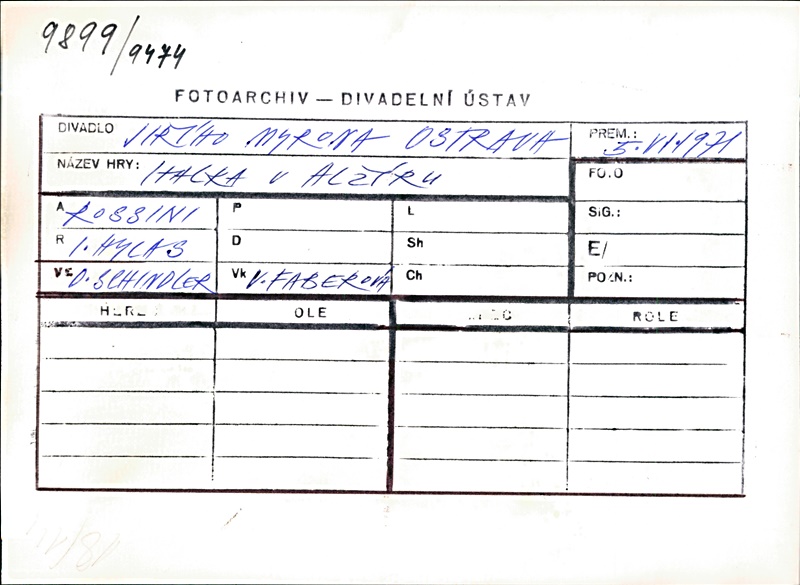 9899/9474
FOTOARCHIV — DIVADELNÍ ÚSTAV
DIVADLO JIŘÍHO MYRONA OSTRAVA PREM.: 5. VI. 1971
NÁZEV HRY: ITALKA V ALŽÍRU FOTO
A ROSSINI P L SIG.:
R I. HYLAS D Sh E/
VS O. SCHINDLER Vk V. FABEROVÁ Ch POZN.:
ROLE